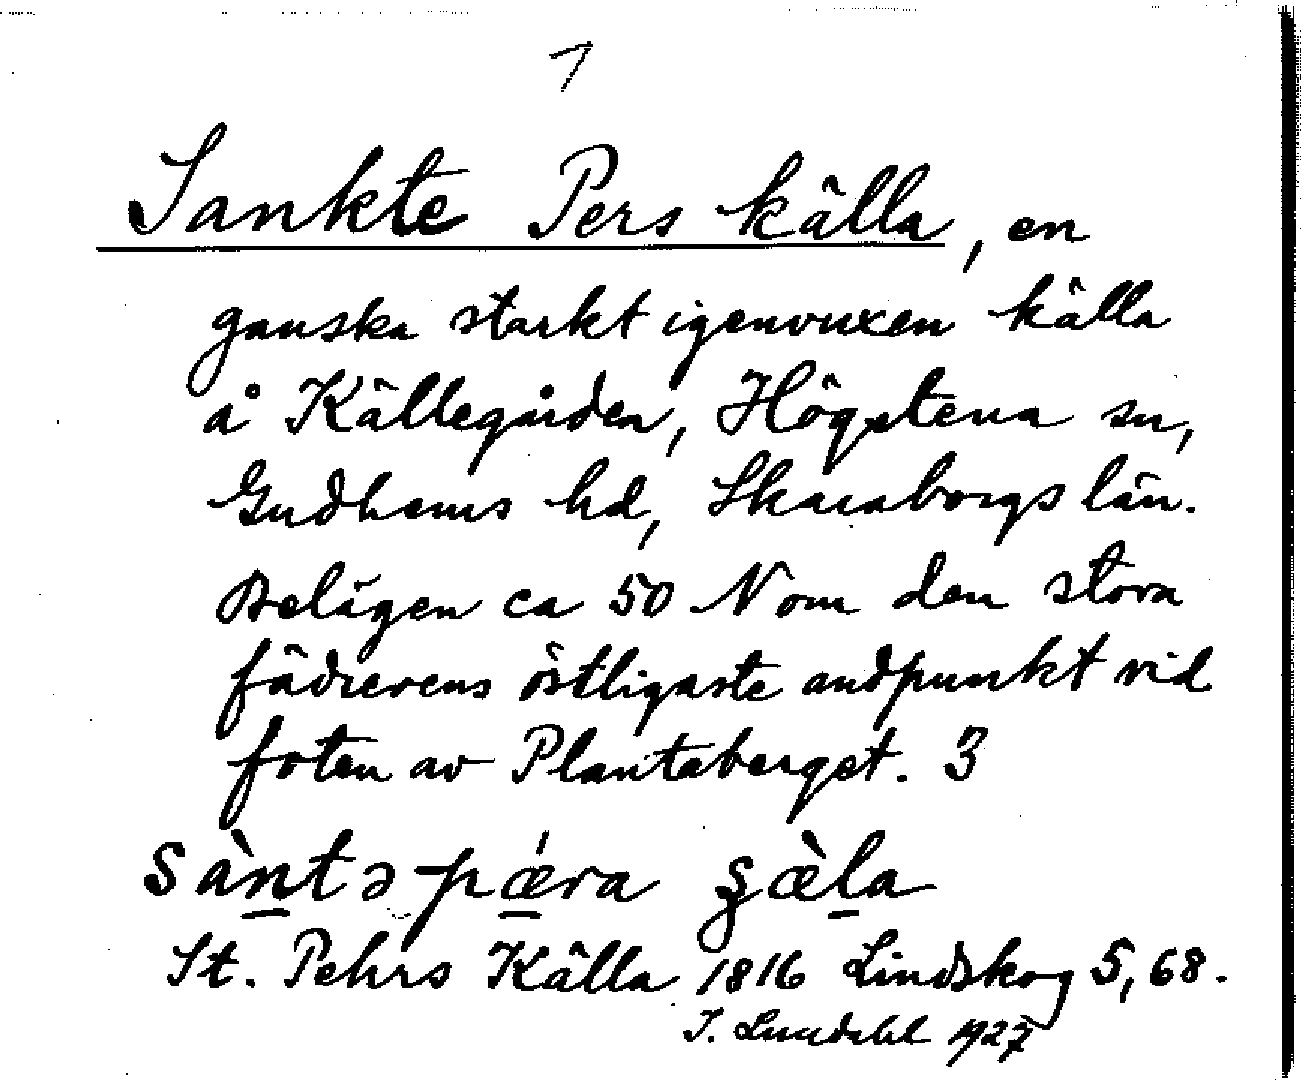 1
Sankte Pers källa, en
ganska starkt igenvuxen källa
å Källegården, Högstena sn,
Gudhems hd, Skaraborgs län.
Belägen ca 50 N om den stora
fädrevens östligaste ändpunkt vid
foten av Plantaberget. 3
sàntə pǽra şæ̀la
St. Pehrs Källa 1816 Lindskog 5,68.
I. Lundahl 1927